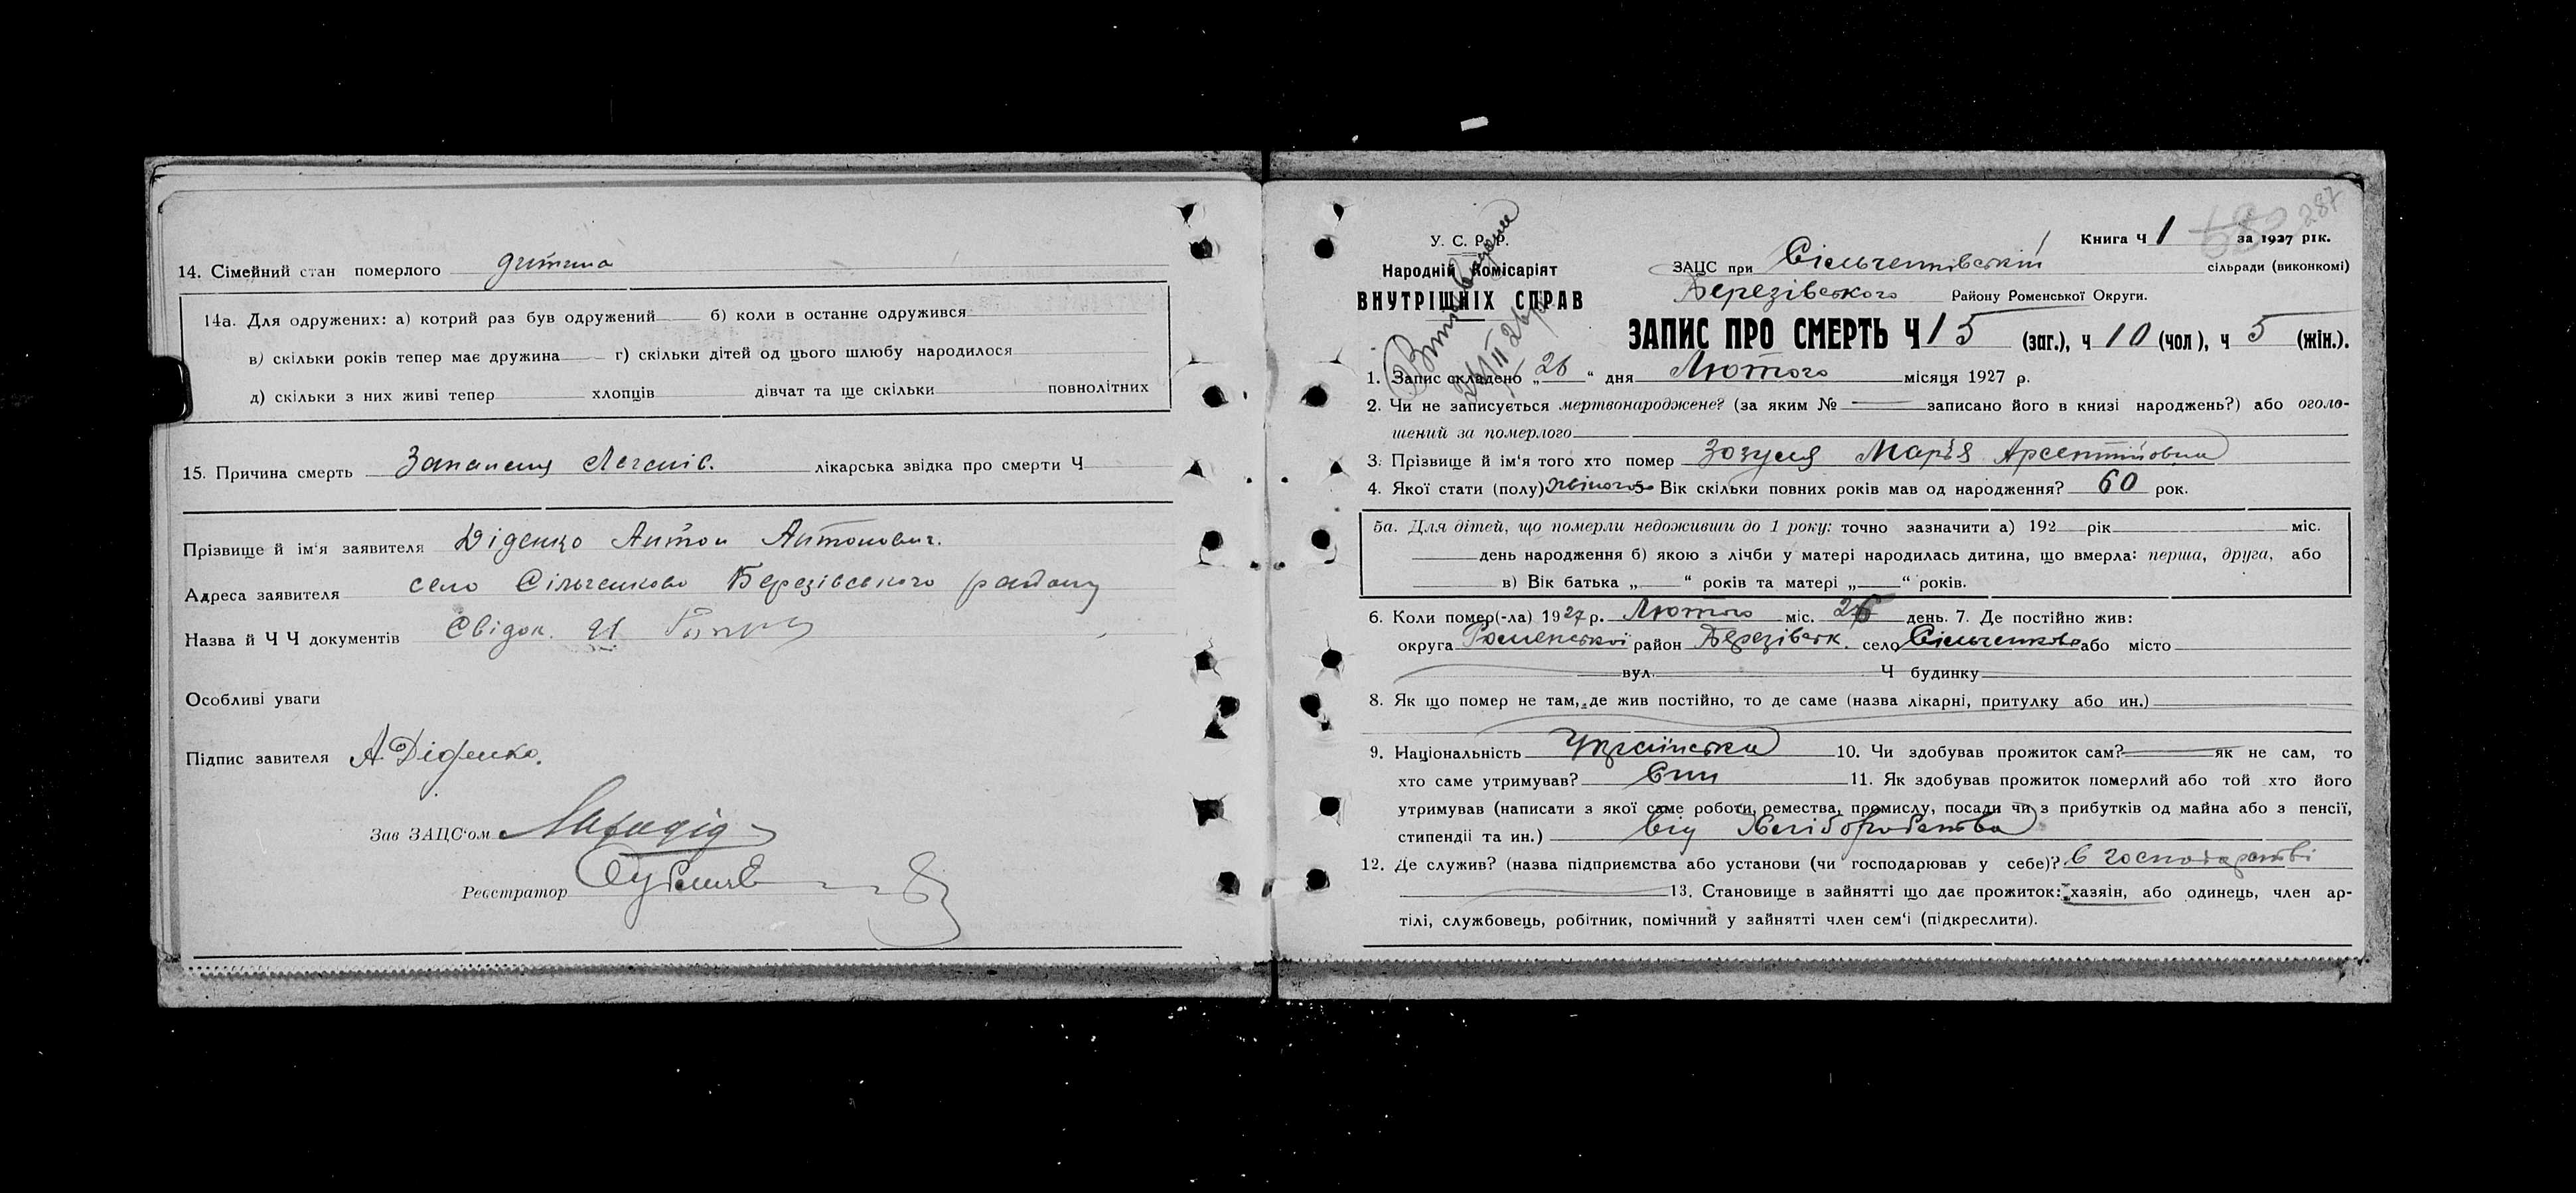 14. Сімейний стан померлого дитина
14а. Для одружених: а) котрий раз був одружений б) коли в останнє одружився
в) скільки років тепер має дружина г) скільки дітей од цього шлюбу народилося
д) скільки з них живі тепер хлопців дівчат та ще скільки повнолітних
15. Причина смерть Запаленя Легенів. лікарська звідка про смерти Ч
Прізвище й ім'я заявителя Діденко Антон Антонович.
Адреса заявителя село Сільченково Березівського району
Назва й Ч Ч документів Свідок. 21
Особливі уваги
Підпис завителя А Діденко.
Зав ЗАЦС'ом
Реєстратор
287
Книга Ч 1 за 1927 рік.
У. С. Р. Р.
Народній Комісаріят
ВНУТРІШНІХ СПРАВ
ЗАЦС при Сільченківській сільради (виконкомі)
Березівського Району Роменської Округи.
ЗАПИС ПРО СМЕРТЬ Ч 15 (заг.), ч 10 (чол), ч 5 (жін.).
1. Запис складено „26“ дня Лютого місяця 1927 р.
2. Чи не записується мертвонароджене? (за яким № записано його в книзі народжень?) або оголо-
шений за померлого
3. Прізвище й ім'я того хто помер Зозуля Марія Арсентійовна
4. Якої стати (полу) Жіночого 5 Вік скільки повних років мав од народження? 60 рок.
5а. Для дітей, що померли недоживши до 1 року: точно зазначити а) 192 рік міс.
день народження б) якою з лічби у матері народилась дитина, що вмерла: перша, друга, або
в) Вік батька „ “ років та матері „ “ років.
6. Коли помер(-ла) 1927 р. Лютого міс. 26 день. 7. Де постійно жив:
округа Роменської район Березівськ. село Сільченково або місто
вул. Ч будинку
8. Як що помер не там, де жив постійно, то де саме (назва лікарні, притулку або ин.)
9. Національність Українська 10. Чи здобував прожиток сам? як не сам, то
хто саме утримував? Син 11. Як здобував прожиток померлий або той хто його
утримував (написати з якої саме роботи, ремества, промислу, посади чи з прибутків од майна або з пенсії,
стипендії та ин.) від Хліборобства
12. Де служив? (назва підприємства або установи (чи господарював у себе)? в господарстві
13. Становище в зайнятті що дає прожиток: хазяін, або одинець, член ар-
тілі, службовець, робітник, помічний у зайнятті член сем'і (підкреслити).